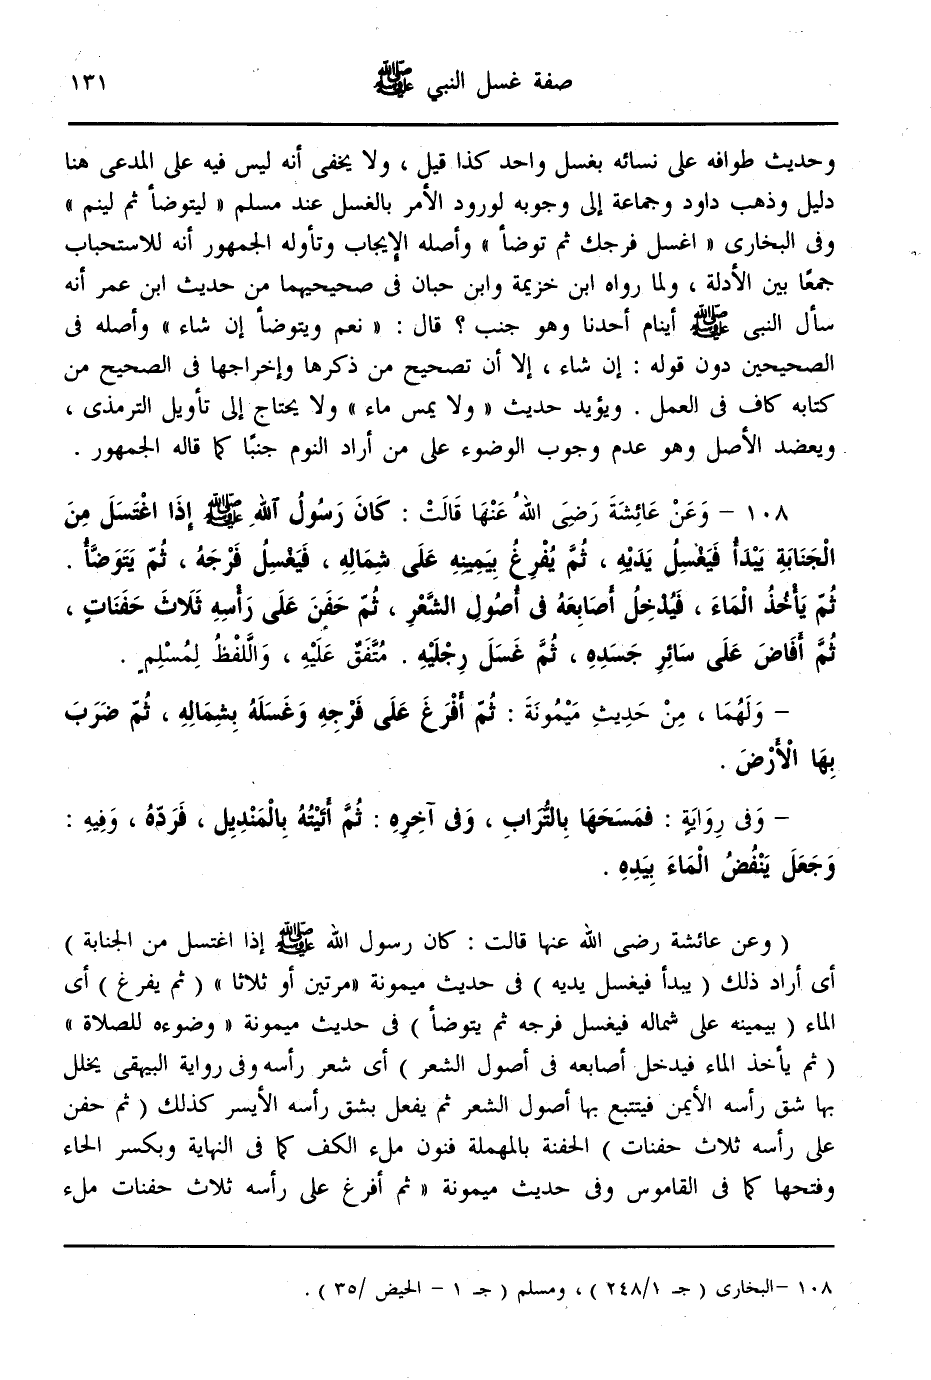 صفة غسل النبي ﷺ ١٣١
وحديث طوافه على نسائه بغسل واحد كذا قيل ، ولا يخفى أنه ليس فيه على المدعى هنا
دليل وذهب داود وجماعة إلى وجوبه لورود الأمر بالغسل عند مسلم « ليتوضأ ثم لينم »
وفى البخارى « اغسل فرجك ثم توضأ » وأصله الإيجاب وتأوله الجمهور أنه للاستحباب
جمعًا بين الأدلة ، ولما رواه ابن خزيمة وابن حبان فى صحيحيهما من حديث ابن عمر أنه
سأل النبى ﷺ أينام أحدنا وهو جنب ؟ قال : « نعم ويتوضأ إن شاء » وأصله فى
الصحيحين دون قوله : إن شاء ، إلا أن تصحيح من ذكرها وإخراجها فى الصحيح من
كتابه كاف فى العمل . ويؤيد حديث « ولا يمس ماء » ولا يحتاج إلى تأويل الترمذى ،
ويعضد الأصل وهو عدم وجوب الوضوء على من أراد النوم جنبًا كما قاله الجمهور .
١٠٨ – وَعَنْ عَائِشَةَ رَضِىَ اللهُ عَنْهَا قَالَتْ : كَانَ رَسُولُ اللهِ ﷺ إِذَا اغْتَسَلَ مِنَ
الْجَنَابَةِ يَبْدَأُ فَيَغْسِلُ يَدَيْهِ ، ثُمَّ يُفْرِغُ بِيَمِينِهِ عَلَى شِمَالِهِ ، فَيَغْسِلُ فَرْجَهُ ، ثُمّ يَتَوَضَّأُ .
ثُمّ يَأْخُذُ الْمَاءَ ، فَيُدْخِلُ أَصَابِعَهُ فى أُصُولِ الشَّعْرِ ، ثُمّ حَفَنَ عَلَى رَأْسِهِ ثَلَاثَ حَفَنَاتٍ ،
ثُمَّ أَفَاضَ عَلَى سَائِرِ جَسَدِهِ ، ثُمَّ غَسَلَ رِجْلَيْهِ . مُتَّفَقٌ عَلَيْهِ ، وَاللَّفْظُ لِمُسْلِمٍ .
– وَلَهُمَا ، مِنْ حَدِيثِ مَيْمُونَةَ : ثُمّ أَفْرَغَ عَلَى فَرْجِهِ وَغَسَلَهُ بِشِمَالِهِ ، ثُمّ ضَرَبَ
بِهَا الْأَرْضَ .
– وَفى رِوَايَةٍ : فَمَسَحَهَا بِالتُّرَابِ ، وَفى آخِرِهِ : ثُمَّ أَتَيْتُهُ بِالْمَنْدِيلِ ، فَرَدّهُ ، وَفِيهِ :
وَجَعَلَ يَنْفُضُ الْمَاءَ بِيَدِهِ .
( وعن عائشة رضى الله عنها قالت : كان رسول الله ﷺ إذا اغتسل من الجنابة )
أى أراد ذلك ( يبدأ فيغسل يديه ) فى حديث ميمونة «مرتين أو ثلاثا » ( ثم يفرغ ) أى
الماء ( بيمينه على شماله فيغسل فرجه ثم يتوضأ ) فى حديث ميمونة « وضوءه للصلاة »
( ثم يأخذ الماء فيدخل أصابعه فى أصول الشعر ) أى شعر رأسه وفى رواية البيهقى يخلل
بها شق رأسه الأيمن فيتتبع بها أصول الشعر ثم يفعل بشق رأسه الأيسر كذلك ( ثم حفن
على رأسه ثلاث حفنات ) الحفنة بالمهملة فنون ملء الكف كما فى النهاية وبكسر الحاء
وفتحها كما فى القاموس وفى حديث ميمونة « ثم أفرغ على رأسه ثلاث حفنات ملء
١٠٨ – البخارى ( جـ ٢٤٨/١ ) ، ومسلم ( جـ ١ – الحيض /٣٥ ) .